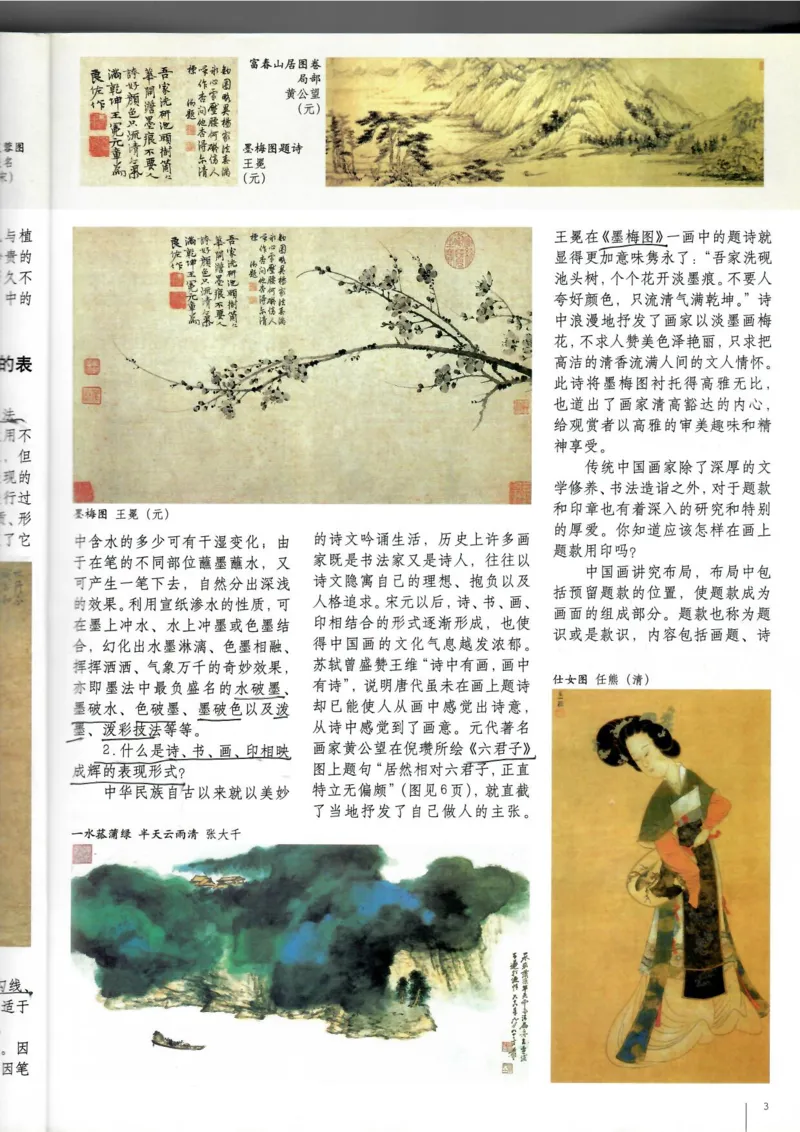 富春山居图卷
局部
黄公望
(元)
墨梅图题诗
王冕
(元)
吾家洗研池头树
个个
华开澹墨痕不要人
夸好颜色只流清气
满乾坤王冕元章为
良佐作
墨梅图 王冕 (元)
中含水的多少可有干湿变化；由
于在笔的不同部位蘸墨蘸水，又
可产生一笔下去，自然分出深浅
的效果。利用宣纸渗水的性质，可
在墨上冲水、水上冲墨或色墨结
合，幻化出水墨淋漓、色墨相融、
挥挥洒洒、气象万千的奇妙效果，
亦即墨法中最负盛名的水破墨、
墨破水、色破墨、墨破色以及泼
墨、泼彩技法等等。
2.什么是诗、书、画、印相映
成辉的表现形式?
中华民族自古以来就以美妙
的诗文吟诵生活，历史上许多画
家既是书法家又是诗人，往往以
诗文隐寓自己的理想、抱负以及
人格追求。宋元以后，诗、书、画、
印相结合的形式逐渐形成，也使
得中国画的文化气息越发浓郁。
苏轼曾盛赞王维“诗中有画，画中
有诗”，说明唐代虽未在画上题诗
却已能使人从画中感觉出诗意，
从诗中感觉到了画意。元代著名
画家黄公望在倪瓒所绘《六君子》
图上题句“居然相对六君子，正直
特立无偏颇”(图见6页)，就直截
了当地抒发了自己做人的主张。
王冕在《墨梅图》一画中的题诗就
显得更加意味隽永了：“吾家洗砚
池头树，个个花开淡墨痕。不要人
夸好颜色，只流清气满乾坤。”诗
中浪漫地抒发了画家以淡墨画梅
花，不求人赞美色泽艳丽，只求把
高洁的清香流满人间的文人情怀。
此诗将墨梅图衬托得高雅无比，
也道出了画家清高豁达的内心，
给观赏者以高雅的审美趣味和精
神享受。
传统中国画家除了深厚的文
学修养、书法造诣之外，对于题款
和印章也有着深入的研究和特别
的厚爱。你知道应该怎样在画上
题款用印吗?
中国画讲究布局，布局中包
括预留题款的位置，使题款成为
画面的组成部分。题款也称为题
识或是款识，内容包括画题、诗
仕女图 任熊 (清)
一水菰蒲绿 半天云雨清 张大千
3